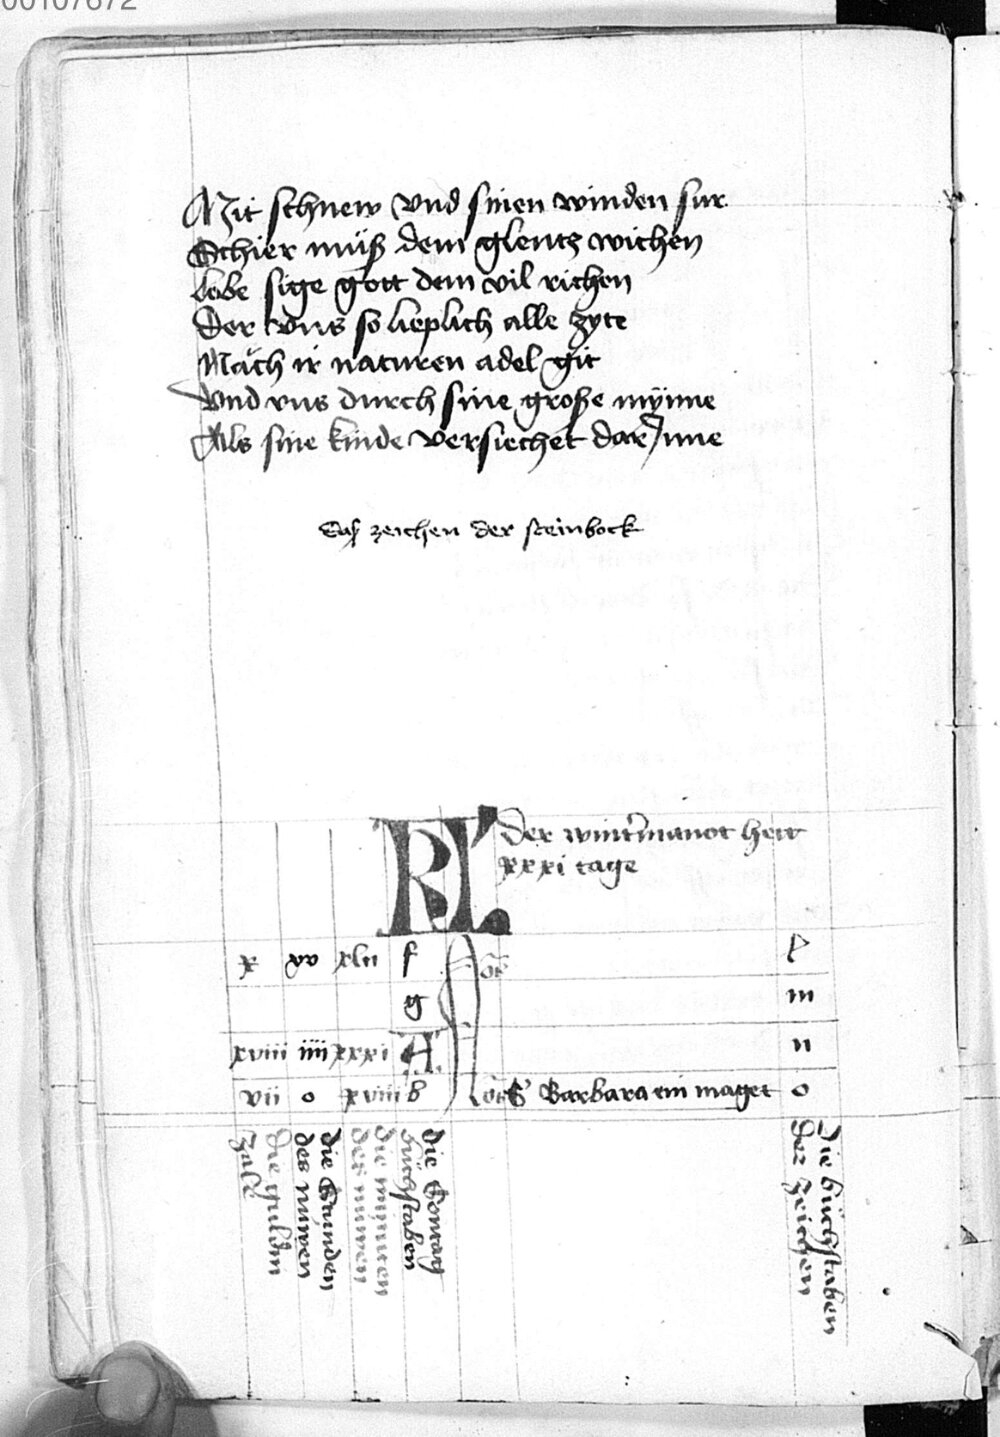 00107672
Mit schnew vnd sinen winden sur
Schier müß dem glentz wichen
Lobe sige gott dem vil richen
Der vns so lieplich alle zyte
Näch ir naturen adel git
Vnd vns durch sine große mÿnne
Als sine kinde versiechet dar jnne
Daß zeichen der steinbock
KL Der wintermanot hett
xxxi tage
x xv xlii f p
g m
xviii iiii xxxi A n
vii o xviii b Barbara ein maget o
die guldin
zale
die Stunden
des nüwen
die mynuten
des nüwen
die Sontag
büchstaben
Die büchstaben
der zeichen